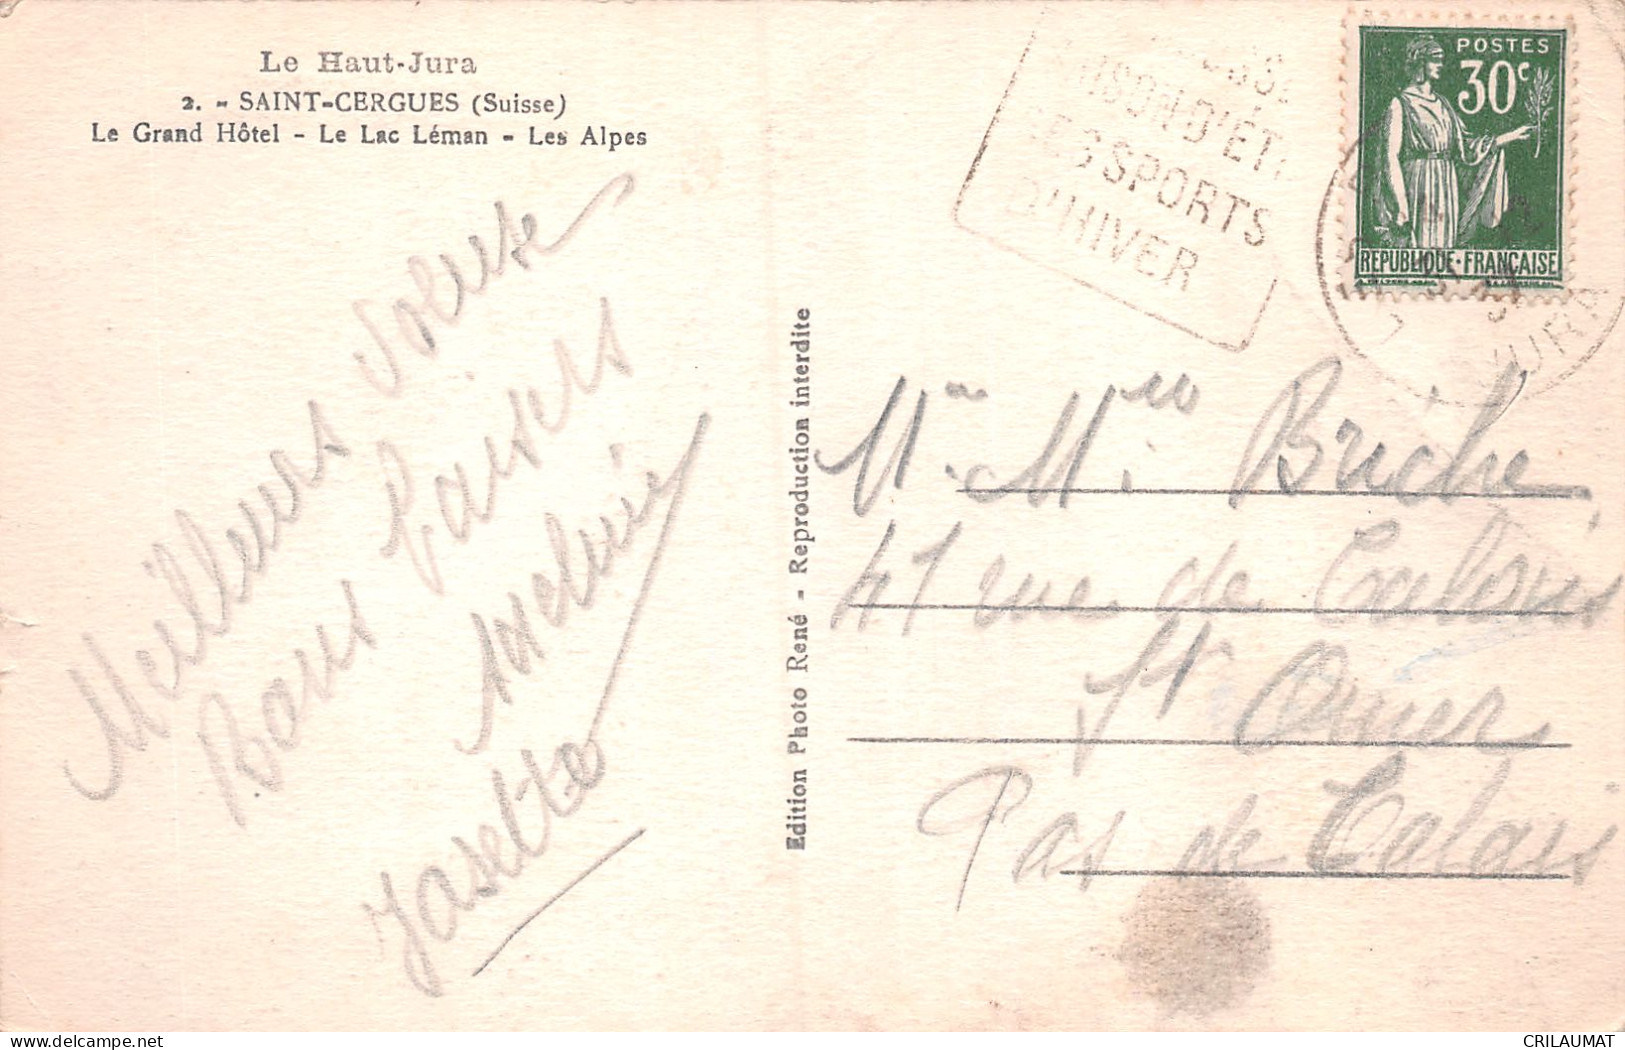 Le Haut-Jura
2. - SAINT-CERGUES (Suisse)
Le Grand Hôtel - Le Lac Léman - Les Alpes
Meilleurs
Bons baisers
Josette
Edition Photo René - Reproduction interdite
SPORTS
D'HIVER
POSTES
30c
REPUBLIQUE·FRANÇAISE
JURA
Briche
41 rue de Calais
St Omer
Pas de Calais
CRILAUMAT